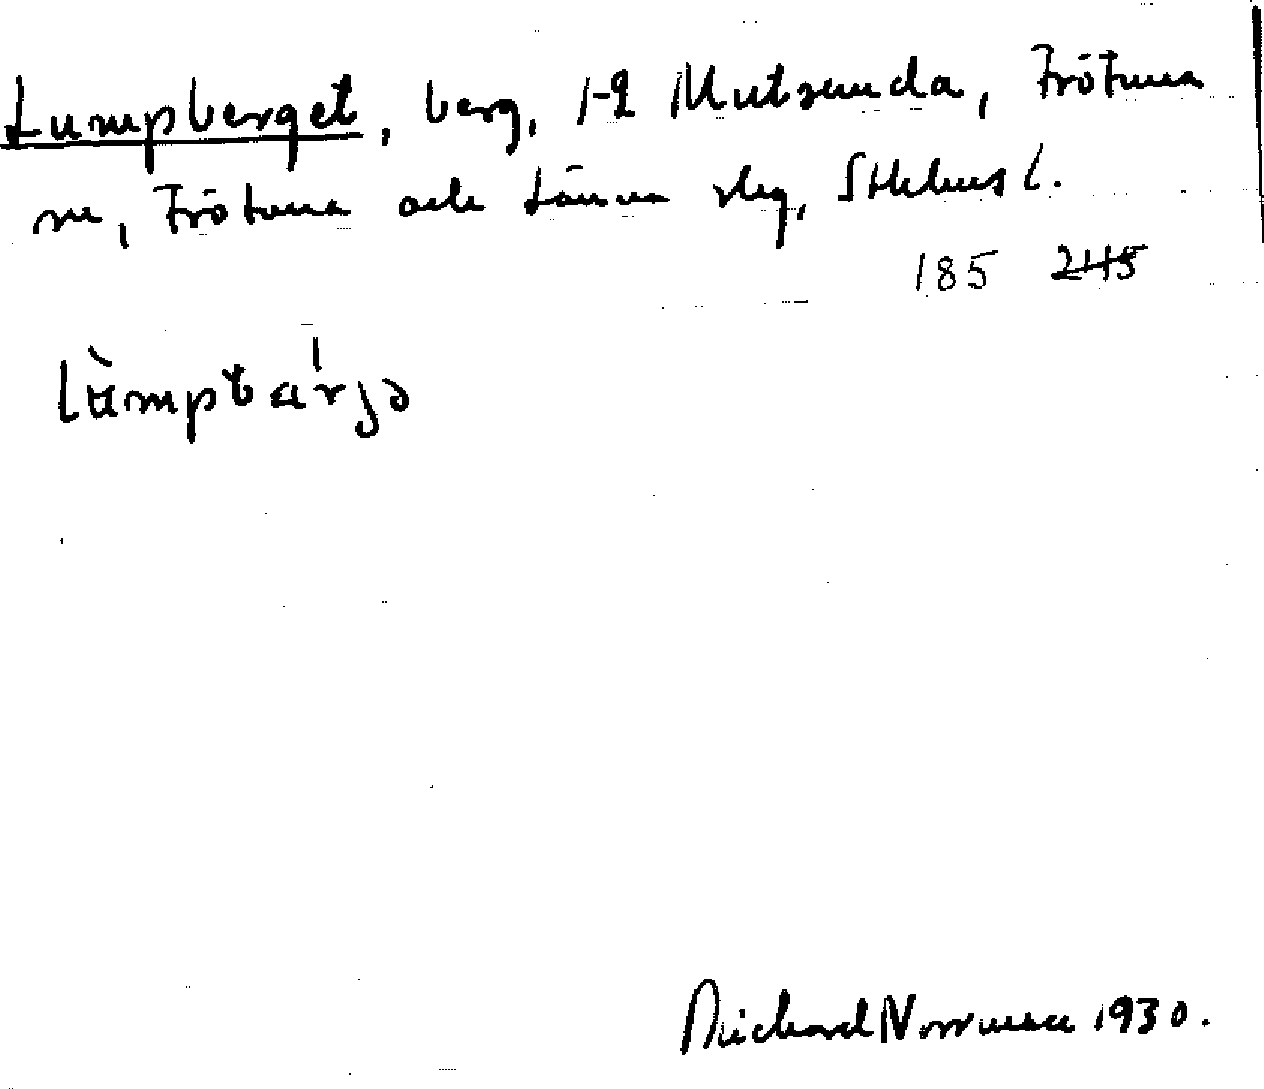 Lumpberget, berg, 1-2 Mutsunda, Frötuna
sn, Frötuna och Länna slg, Sthlms l.
185 245
lùmpbárjə
Richard Norrman 1930.